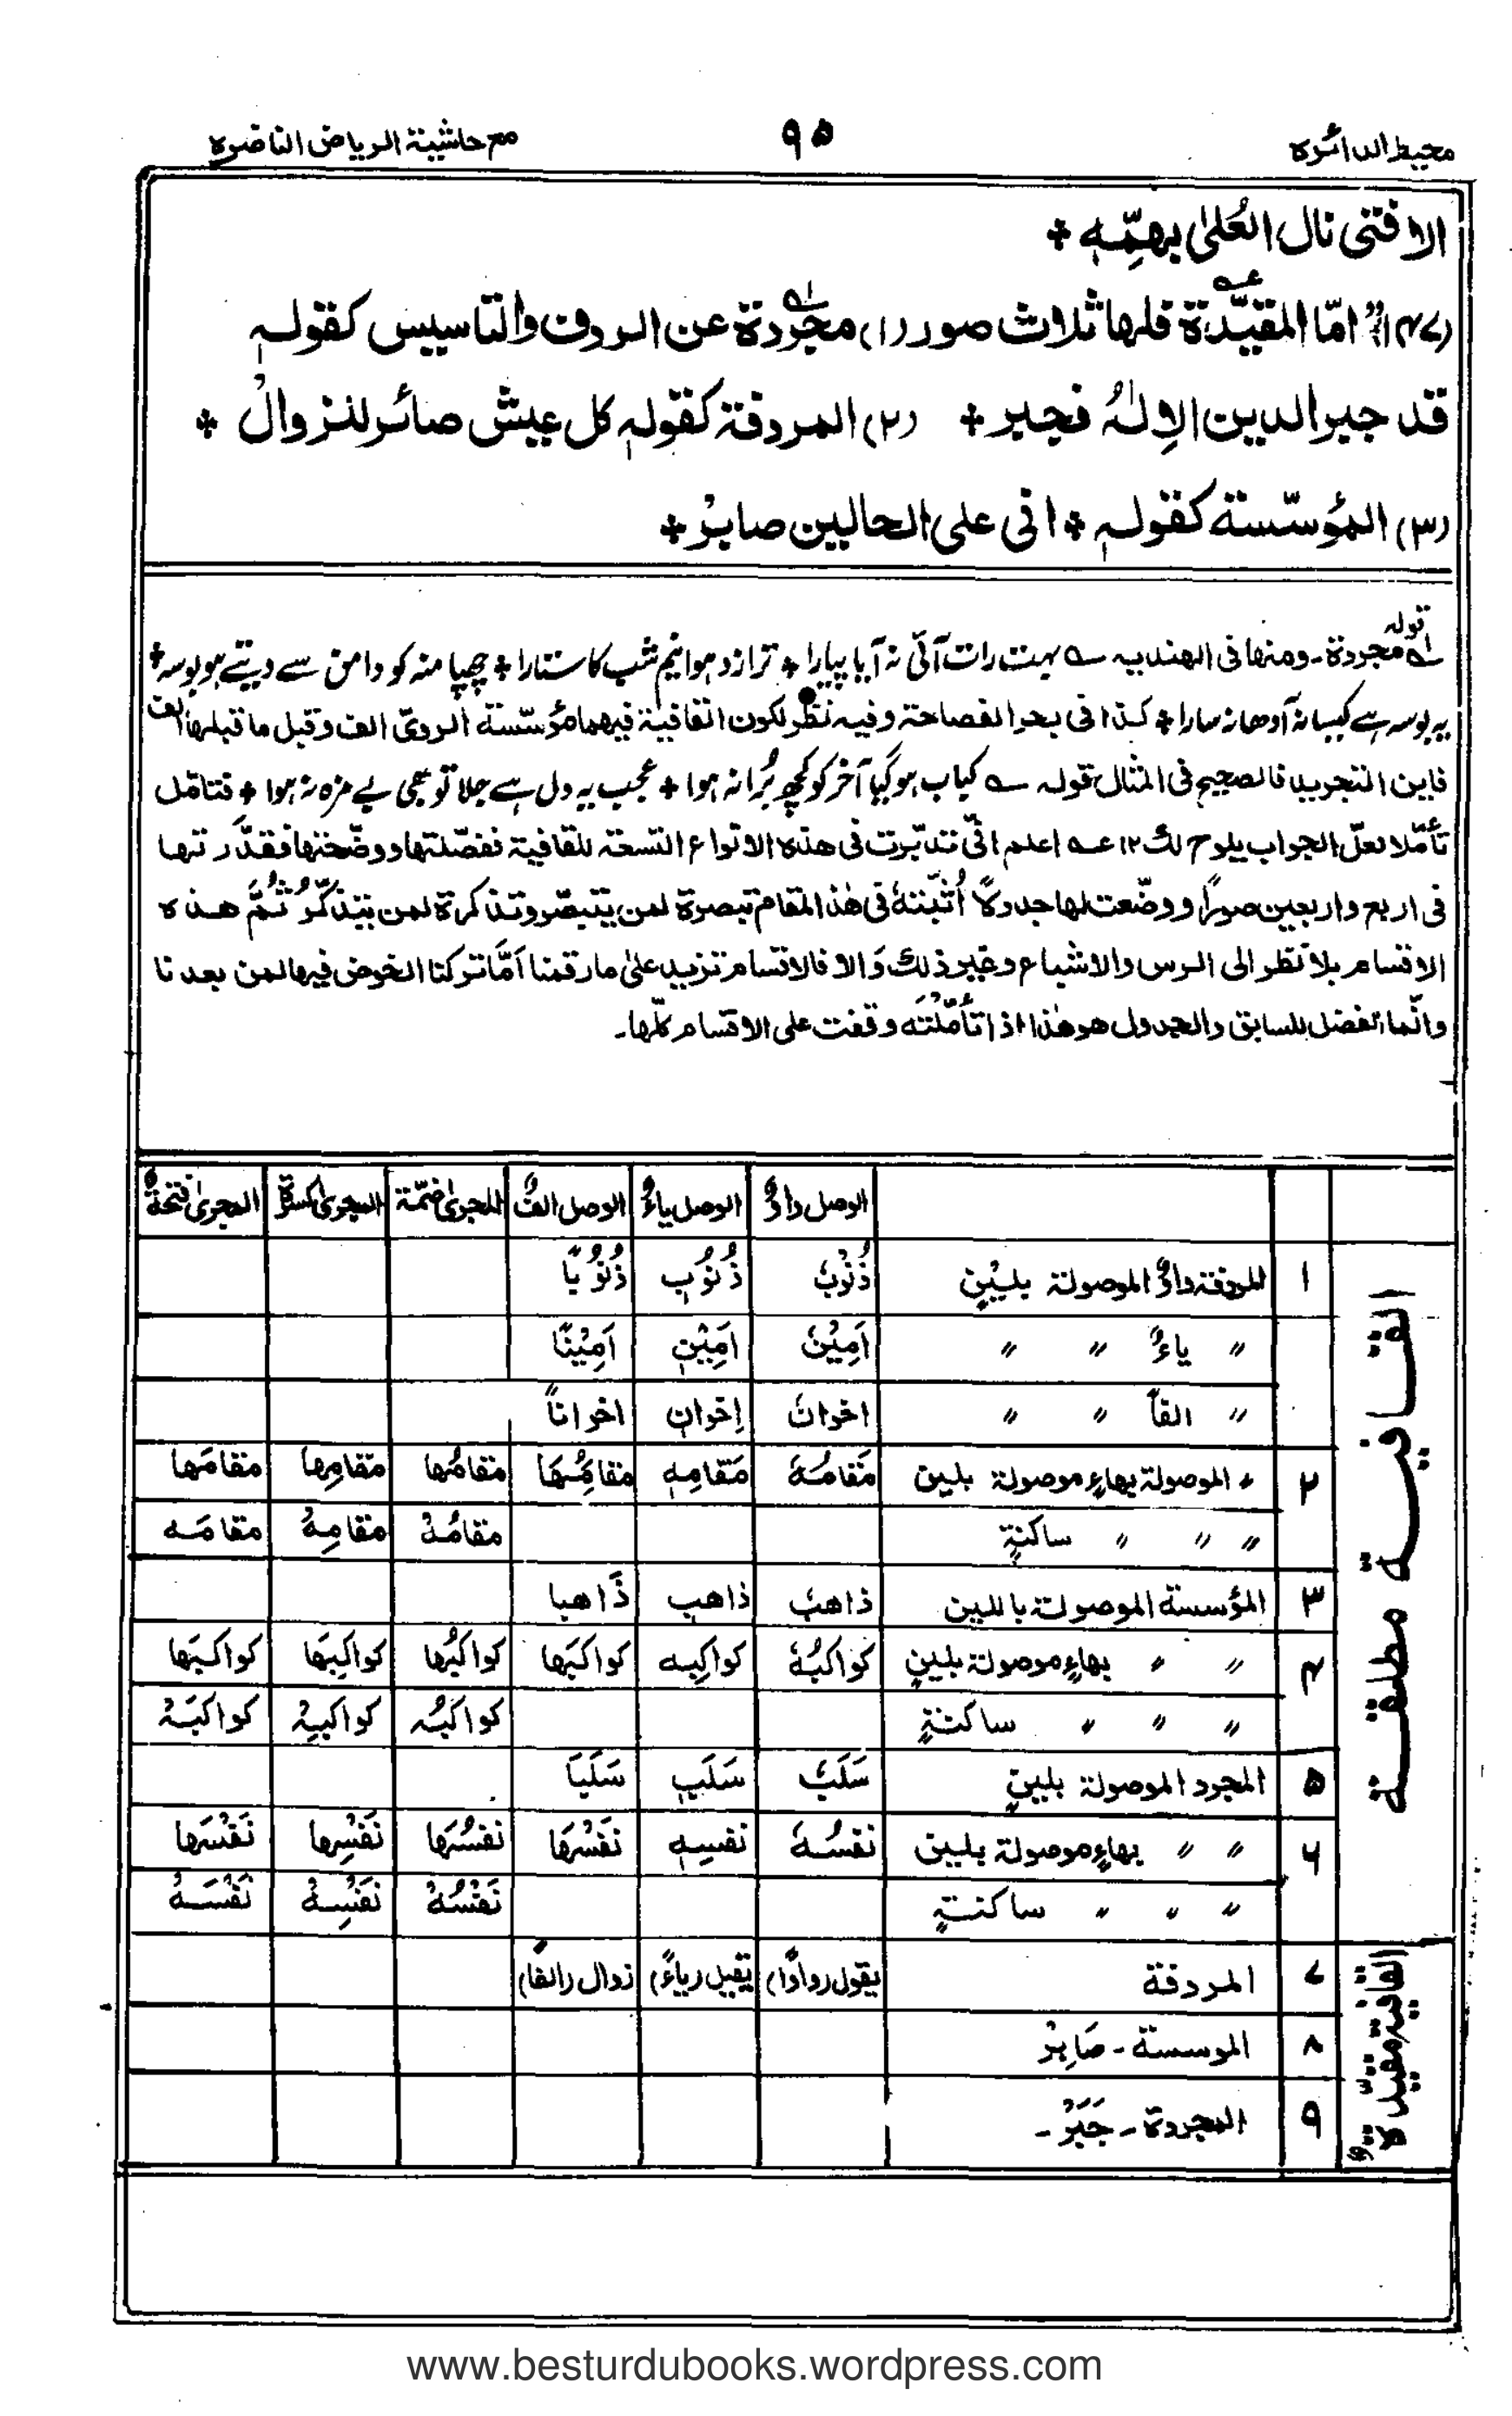 محيط الدائرة
٩٥
مع حاشية الرياض الناضرة
الا فتى نال العُلىٰ بهمِّہٖ *
(٤٧) امّا المقيّدة فلها ثلاث صور (١) مجرّدة عن الردف والتأسيس كقولہٖ
قد جبر الدين الإلٰهُ فجبر * (٢) المردفة كقولہٖ كل عيش صائر للزوالْ *
(٣) المؤسّسة كقولہٖ * انى على الحالين صابرْ *
قوله مجردة۔ ومنها فى الهنديہ ؎ بہت رات آئی نہ آیا پیارا * ترازد ہوا نیم شب کا ستارا * چھپا منہ کو دامن سے دیتے ہو بوسہ *
یہ بوسہ ہے کیسا نہ آدھا نہ سارا * كذا فى بحر الفصاحة وفيه نظر لكون القافية فيهما مؤسّسة الروىّ الف وقبل ما قبلها الف
فاين التجريد فالصحيح فى المثال قولہ ؎ کباب ہو گیا آخر کو کچھ بُرا نہ ہوا * عجب یہ دل ہے جلا تو بھی بے مزہ نہ ہوا * فتأمل
تأمّلا لعلّ الجواب يلوح لك ١٢ عہ اعلم انّى تدبّرت فى هذه الانواع التسعة للقافية ففصّلتها ووضّحتها فقدّرتها
فى اربع واربعين صورًا ووضعت لها جدولًا أُثبتهٗ فى هٰذا المقام تبصرة لمن يتبصّر وتذكرة لمن يتذكّرُ ثُمَّ هذه
الاقسام بلا نظر الى الرس والاشباع وغير ذلك وَالا فالاقسام تزيد علىٰ ما رقمنا أمَّا تركنا الخوض فيها لمن بعدنا
وانّما الفضل للسابق والجدول هو هٰذا اذا تأمّلتَه وقفت على الاقسام كلّها۔
الوصل واوٌ | الوصل ياءٌ | الوصل الفٌ | المجرىٰ ضمّة | المجرىٰ كسرة | المجرىٰ فتحة
القافية مطلقة
١ المردفة واوٌ الموصولة بلينٍ | ذُنُوْبٌ | ذُنُوْبٍ | ذُنُوْبًا
〃 ياءٌ 〃 〃 | اَمِيْنٌ | اَمِيْنٍ | اَمِيْنًا
〃 الفاً 〃 〃 | اخوانٌ | إخوانٍ | اخواناً
٢ 〃 الموصولة بهاءٍ موصولة بلين | مَقامُهٗ | مَقامِهٖ | مقامُهَا | مقامُها | مقامِها | مقامَها
〃 〃 〃 ساكنةٍ | مقامُهْ | مقامِهْ | مقامَه
٣ المؤسسة الموصولة باللين | ذاهبٌ | ذاهبٍ | ذَاهبا
٤ 〃 〃 بهاءٍ موصولة بلينٍ | كواكبُهٗ | كواكِبِه | كواكبَها | كواكبُها | كواكبِهَا | كواكبَها
〃 〃 〃 ساكنةٍ | كواكبُهْ | كواكبِهْ | كواكبَهْ
٥ المجرد الموصولة بلينٍ | سَلَبٌ | سَلَبٍ | سَلَبًا
٦ 〃 〃 بهاءٍ موصولة بلين | نفسُهٗ | نفسِهٖ | نَفْسَهَا | نفسُها | نَفْسِها | نَفْسَها
〃 〃 〃 ساكنةٍ | نَفْسُهْ | نَفْسِهْ | نَفْسَهْ
القافية مقيّدة
٧ المردفة | يقول (واوًا) | يقيل (ياءً) | زوال (الفًا)
٨ الموسسة ۔ صَابِرْ
٩ المجردة ۔ جَبَرْ ۔
www.besturdubooks.wordpress.com